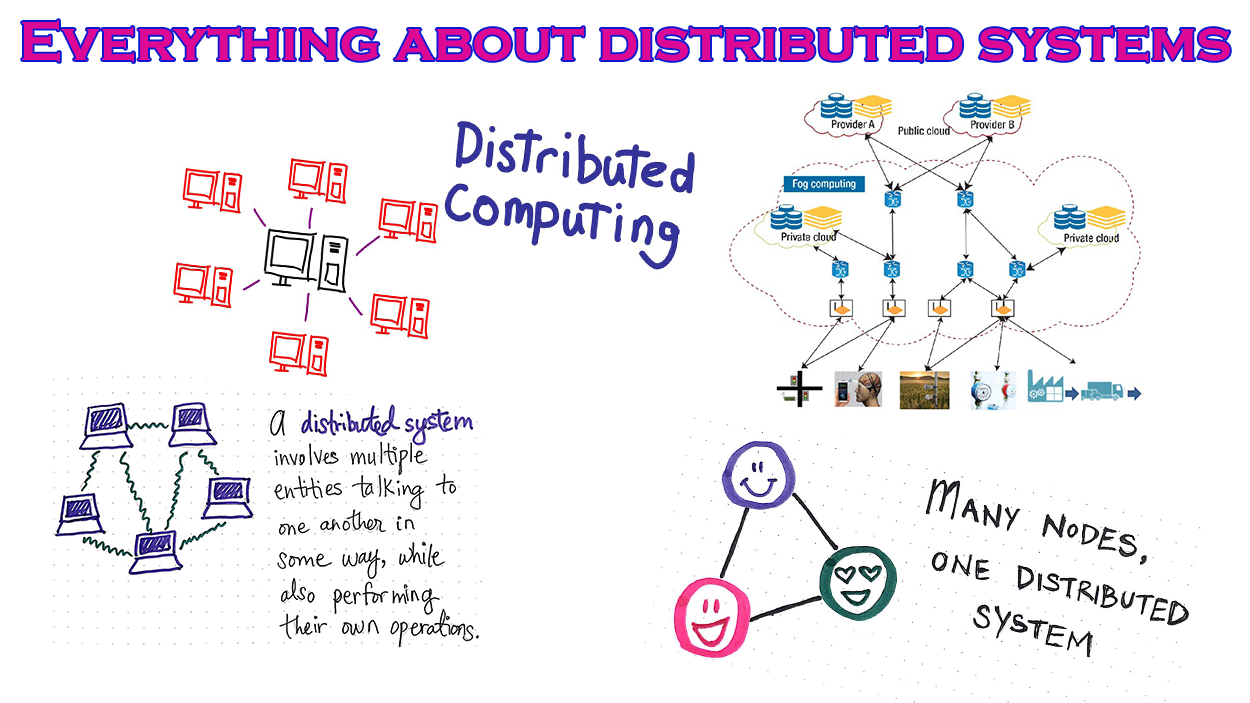 EVERYTHING ABOUT DISTRIBUTED SYSTEMS
Distributed
Computing
Provider A
Public cloud
Provider B
Fog computing
5G
5G
Private cloud
Private cloud
5G
5G
5G
5G
A distributed system
involves multiple
entities talking to
one another in
some way, while
also performing
their own operations.
MANY NODES,
ONE DISTRIBUTED
SYSTEM